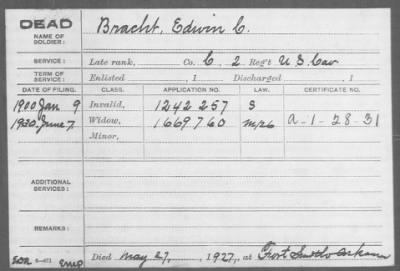 DEAD
NAME OF SOLDIER:
Bracht, Edwin C.
SERVICE:
Late rank, Co. C, 2 Reg't U S Cav
TERM OF SERVICE:
Enlisted , 1 Discharged , 1
DATE OF FILING. CLASS. APPLICATION NO. LAW. CERTIFICATE NO.
1900 Jan 9 Invalid, 1242 257 S
1930 June 7. Widow, 1669760 m/26 a-1-28-31
Minor,
ADDITIONAL SERVICES:
REMARKS:
6—471
Died May 27, , 1927, at Fort Smith Arkansas